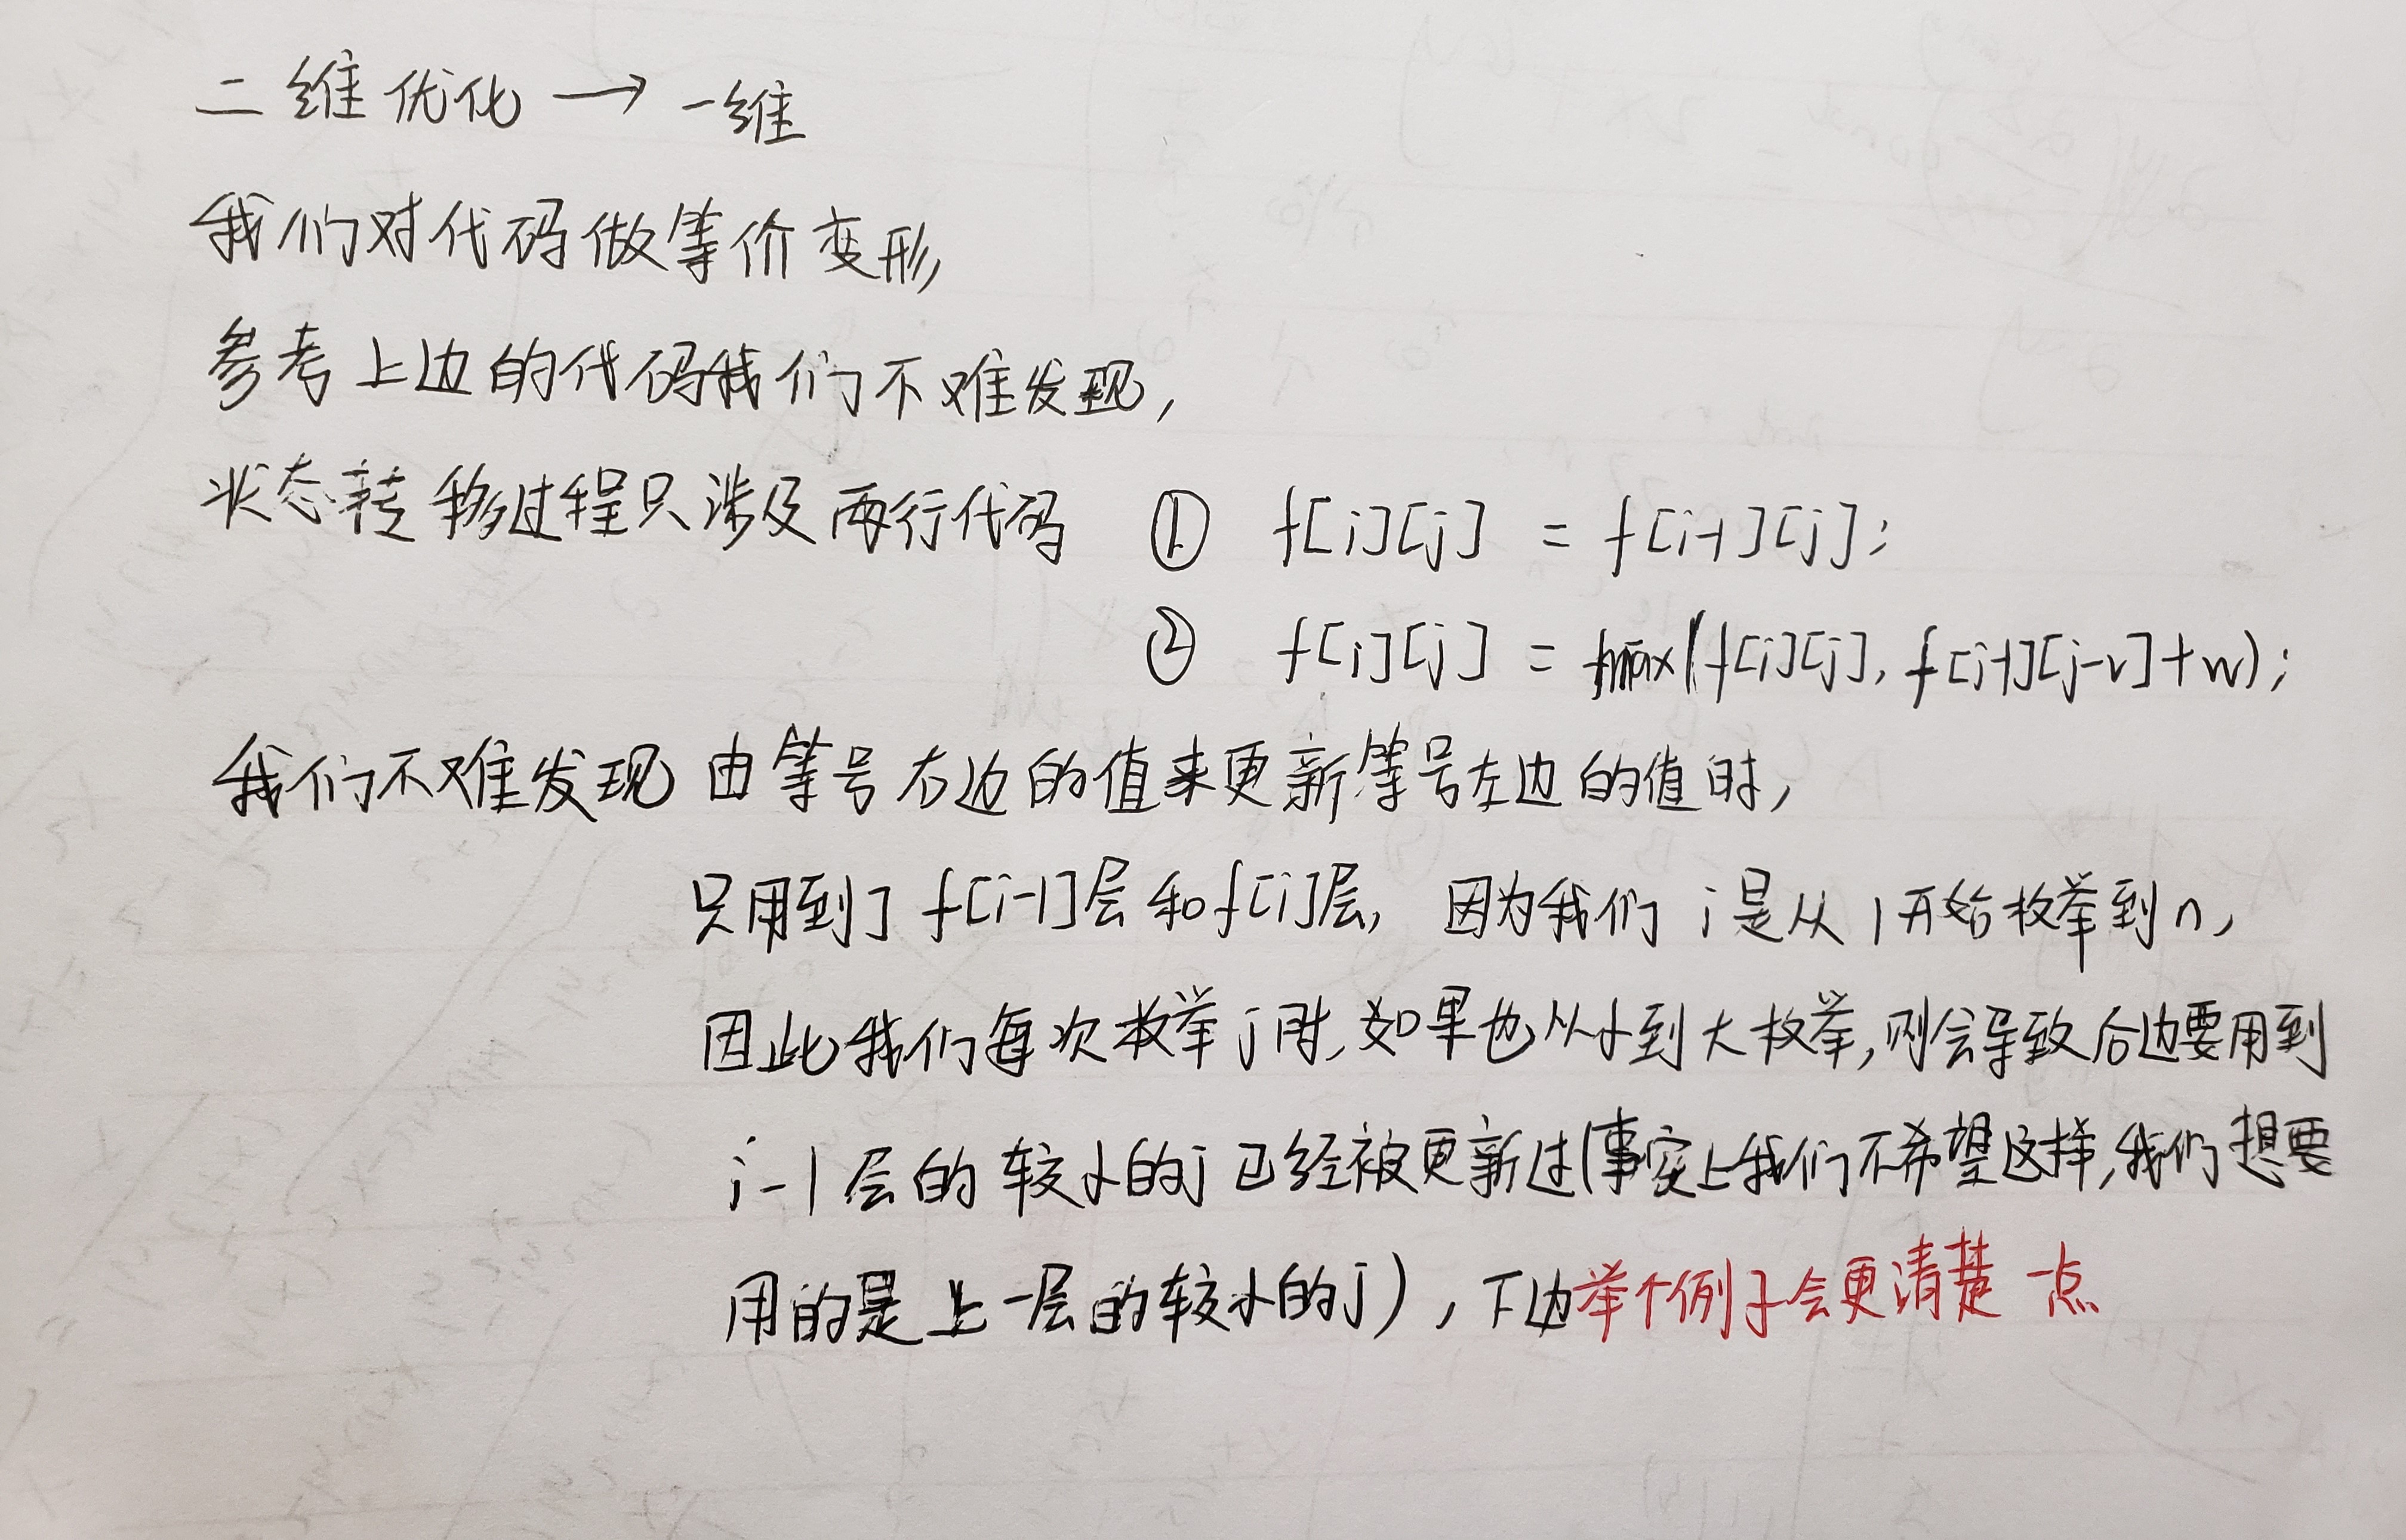 二维优化 → 一维
我们对代码做等价变形,
参考上边的代码我们不难发现,
状态转移过程只涉及两行代码 ① f[i][j] = f[i-1][j];
② f[i][j] = max(f[i][j], f[i-1][j-v]+w);
我们不难发现 由等号右边的值来更新等号左边的值时,
只用到了 f[i-1]层和f[i]层, 因为我们 i是从1开始枚举到n,
因此我们每次枚举j时,如果也从小到大枚举,则会导致后边要用到
i-1层的较小的j已经被更新过(事实上我们不希望这样,我们想要
用的是上一层的较小的j),下边举个例子会更清楚一点